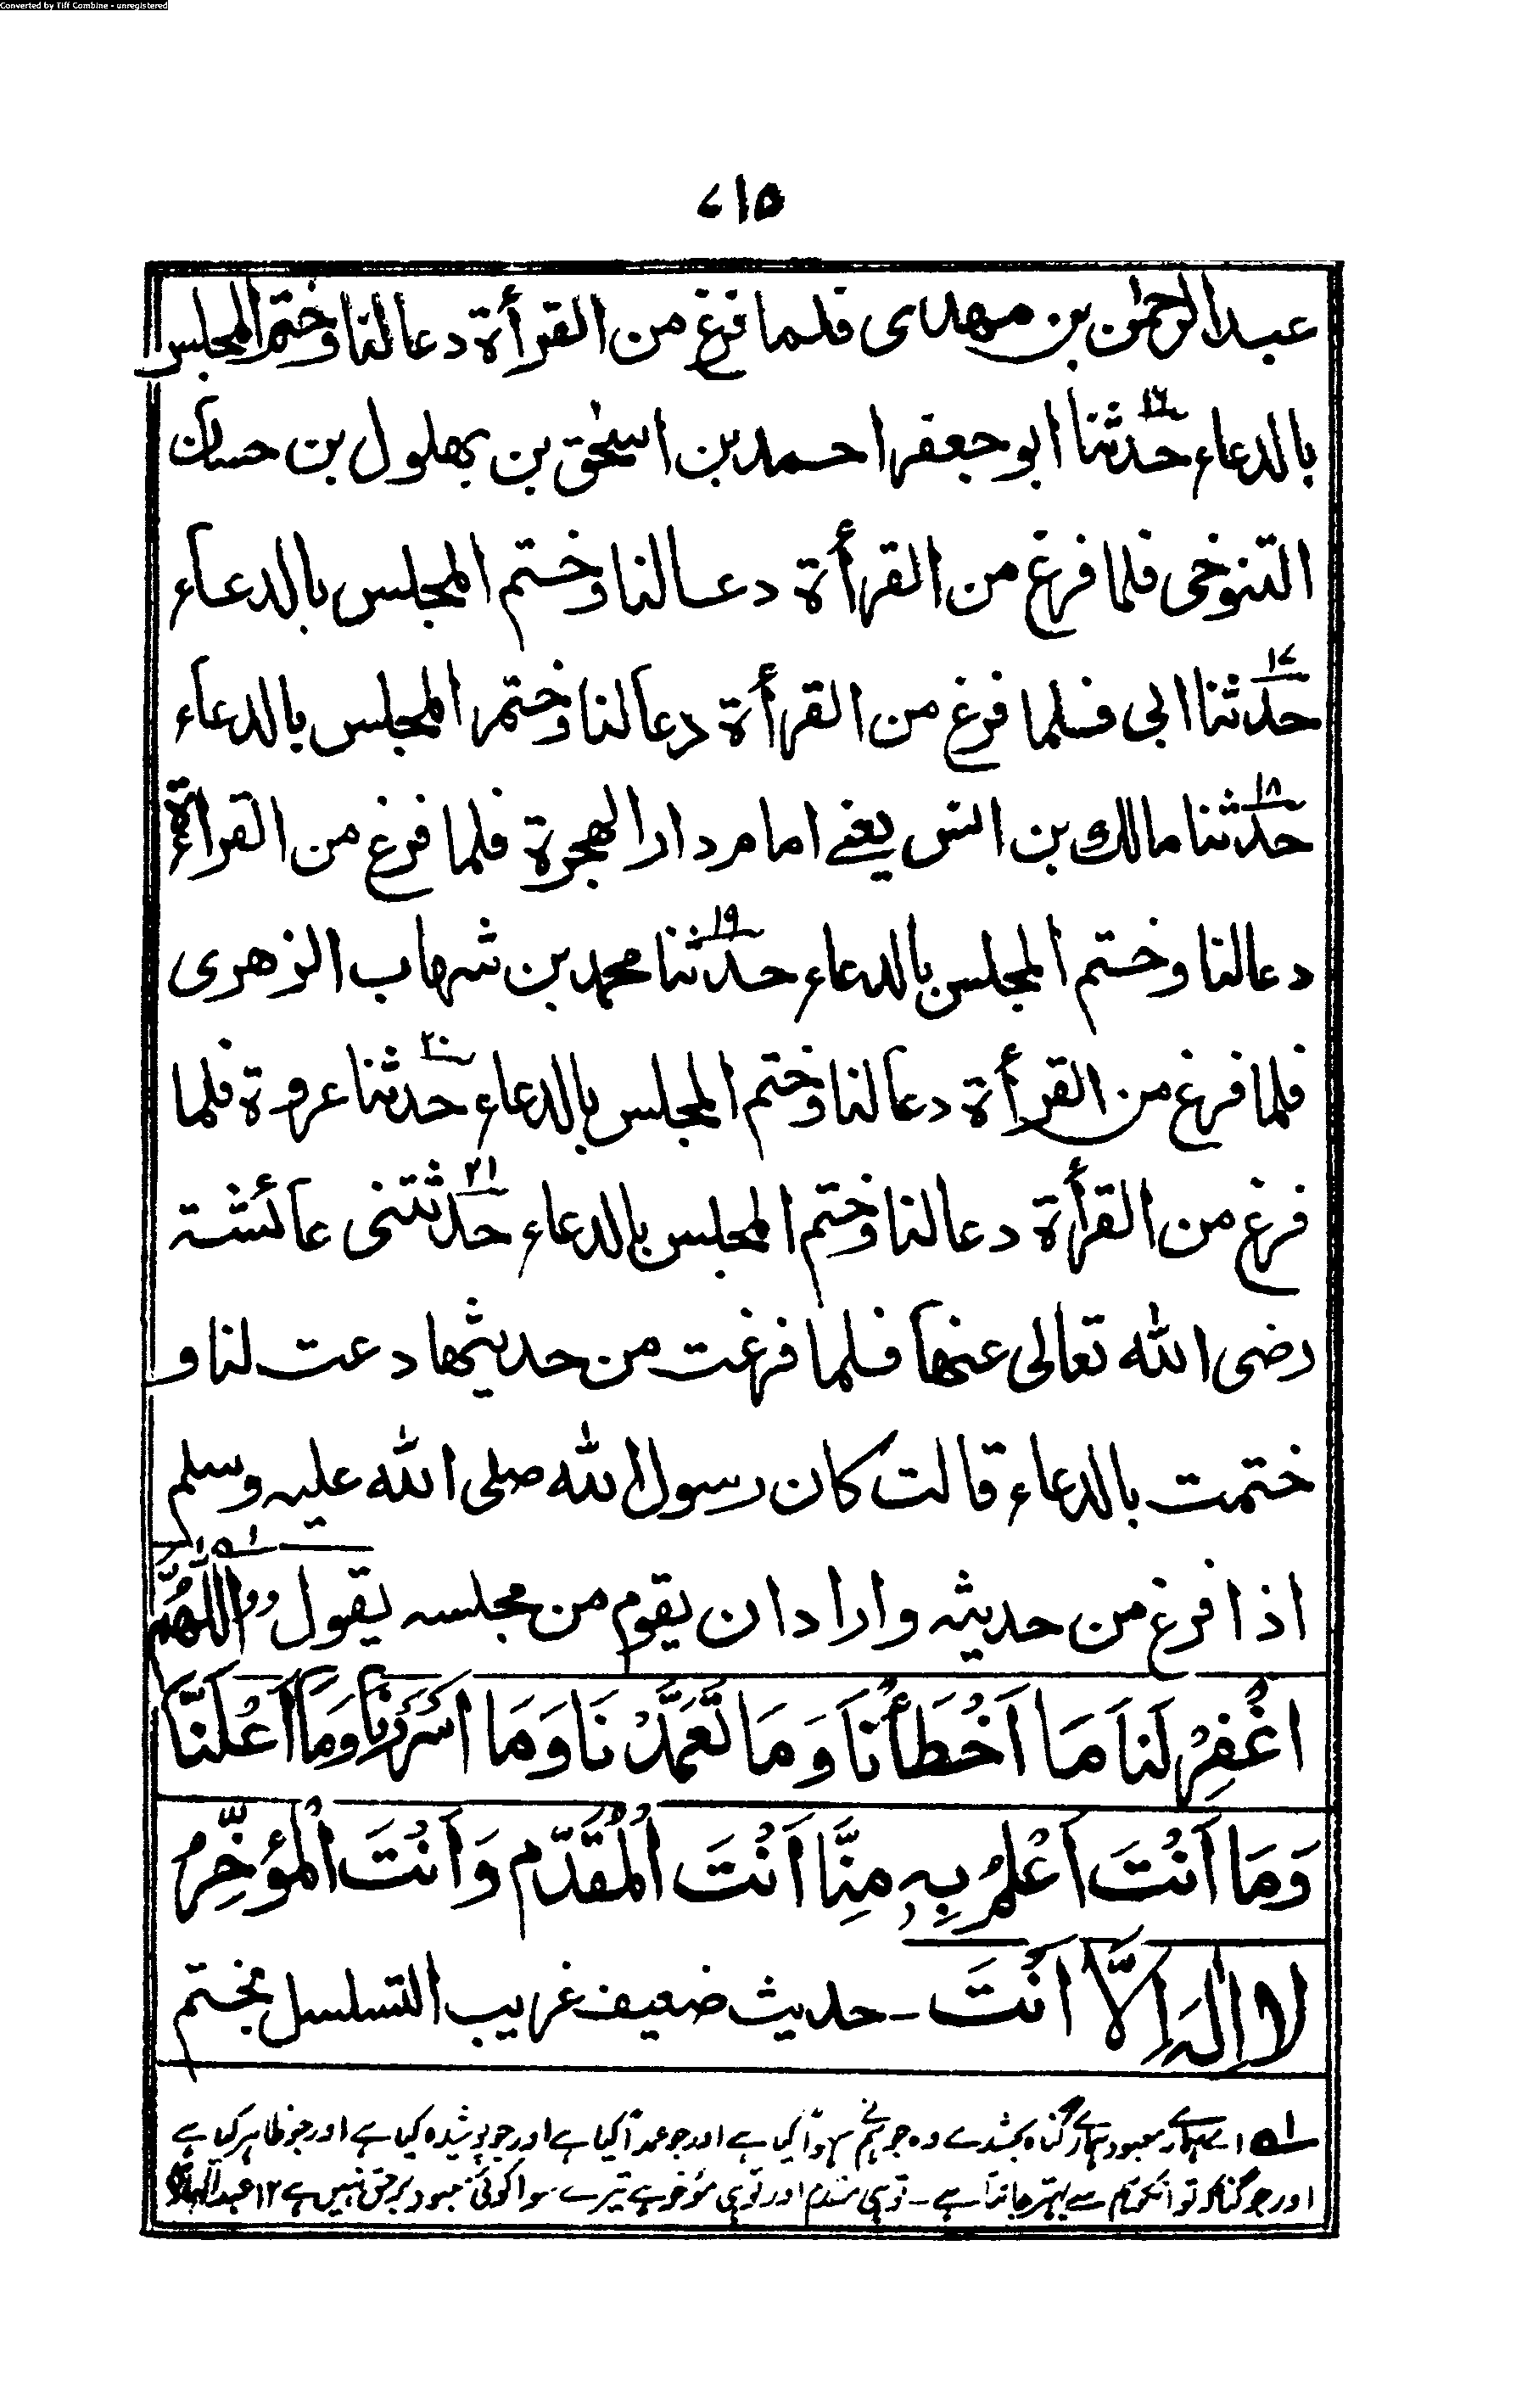 Converted by Tiff Combine - unregistered
۷۱۵
عبدالرحمٰن بن مهدی فلما فرغ من القرأة دعا لنا وختم المجلس
بالدعاء حدثنا ۱۶ ابو جعفر احمد بن اسحٰق بن بهلول بن حسان
التنوخی فلما فرغ من القرأة دعا لنا وختم المجلس بالدعاء
حدثنا ۱۷ ابی فلما فرغ من القرأة دعا لنا وختم المجلس بالدعاء
حدثنا ۱۸ مالك بن انس یعنے امام دار الهجرة فلما فرغ من القراءة
دعا لنا وختم المجلس بالدعاء حدثنا ۱۹ محمد بن شهاب الزهری
فلما فرغ من القرأة دعا لنا وختم المجلس بالدعاء حدثنا ۲۰ عروة فلما
فرغ من القرأة دعا لنا وختم المجلس بالدعاء حدثتنی ۲۱ عائشة
رضی الله تعالی عنها فلما فرغت من حدیثها دعت لنا و
ختمت بالدعاء قالت کان رسول الله صلی الله علیه وسلم
اذا فرغ من حدیثه واراد ان یقوم من مجلسه یقول ”اَللّٰهُمَّ ۱ه
اغْفِرْ لَنَا مَا اَخْطَأْنَا وَمَا تَعَمَّدْنَا وَمَا اَسْرَرْنَا وَمَا اَعْلَنَّا
وَمَا اَنْتَ اَعْلَمُ بِهٖ مِنَّا اَنْتَ الْمُقَدِّم وَاَنْتَ الْمُؤَخِّرُ
لَا اِلٰهَ اِلَّا اَنْتَ - حدیث ضعیف غریب التسلسل بختم
۱ه اے ہمارے معبود ہمارے گناہ بخشدے وہ جو ہم نے سہواً کیا ہے اور جو عمداً کیا ہے اور جو پوشیدہ کیا ہے اور جو ظاہر کیا ہے
اور جو گناہ کو تو انکو ہم سے بہتر جانتا ہے - تو ہی مقدم اور تو ہی مؤخر ہے تیرے سوا کوئی معبود برحق نہیں ہے ۱۲